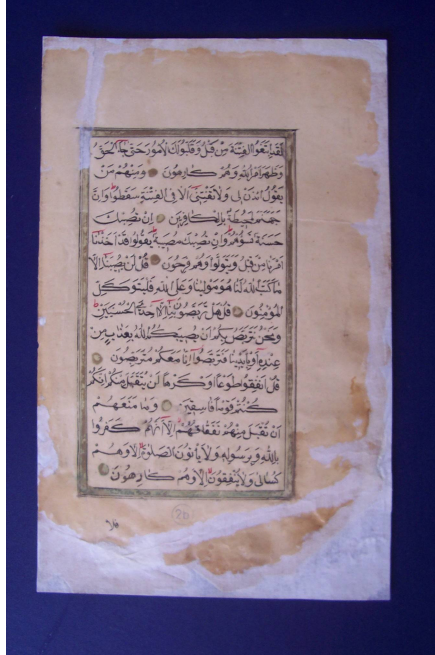 لَقَدِ ابْتَغَوُا الْفِتْنَةَ مِنْ قَبْلُ وَقَلَّبُوا لَكَ الْأُمُورَ حَتَّى جَاءَ الْحَقُّ
وَظَهَرَ أَمْرُ اللهِ وَهُمْ كَارِهُونَ وَمِنْهُمْ مَنْ
يَقُولُ ائْذَنْ لِي وَلَا تَفْتِنِّي أَلَا فِي الْفِتْنَةِ سَقَطُوا وَإِنَّ
جَهَنَّمَ لَمُحِيطَةٌ بِالْكَافِرِينَ إِنْ تُصِبْكَ
حَسَنَةٌ تَسُؤْهُمْ وَإِنْ تُصِبْكَ مُصِيبَةٌ يَقُولُوا قَدْ أَخَذْنَا
أَمْرَنَا مِنْ قَبْلُ وَيَتَوَلَّوْا وَهُمْ فَرِحُونَ قُلْ لَنْ يُصِيبَنَا إِلَّا
مَا كَتَبَ اللهُ لَنَا هُوَ مَوْلٰينَا وَعَلَى اللهِ فَلْيَتَوَكَّلِ
الْمُؤْمِنُونَ قُلْ هَلْ تَرَبَّصُونَ بِنَا إِلَّا إِحْدَى الْحُسْنَيَيْنِ
وَنَحْنُ نَتَرَبَّصُ بِكُمْ أَنْ يُصِيبَكُمُ اللهُ بِعَذَابٍ مِنْ
عِنْدِهِ أَوْ بِأَيْدِينَا فَتَرَبَّصُوا إِنَّا مَعَكُمْ مُتَرَبِّصُونَ
قُلْ أَنْفِقُوا طَوْعًا أَوْ كَرْهًا لَنْ يُتَقَبَّلَ مِنْكُمْ إِنَّكُمْ
كُنْتُمْ قَوْمًا فَاسِقِينَ وَمَا مَنَعَهُمْ
أَنْ تُقْبَلَ مِنْهُمْ نَفَقَاتُهُمْ إِلَّا أَنَّهُمْ كَفَرُوا
بِاللهِ وَبِرَسُولِهِ وَلَا يَأْتُونَ الصَّلٰوةَ إِلَّا وَهُمْ
كُسَالَى وَلَا يُنْفِقُونَ إِلَّا وَهُمْ كَارِهُونَ
فلا